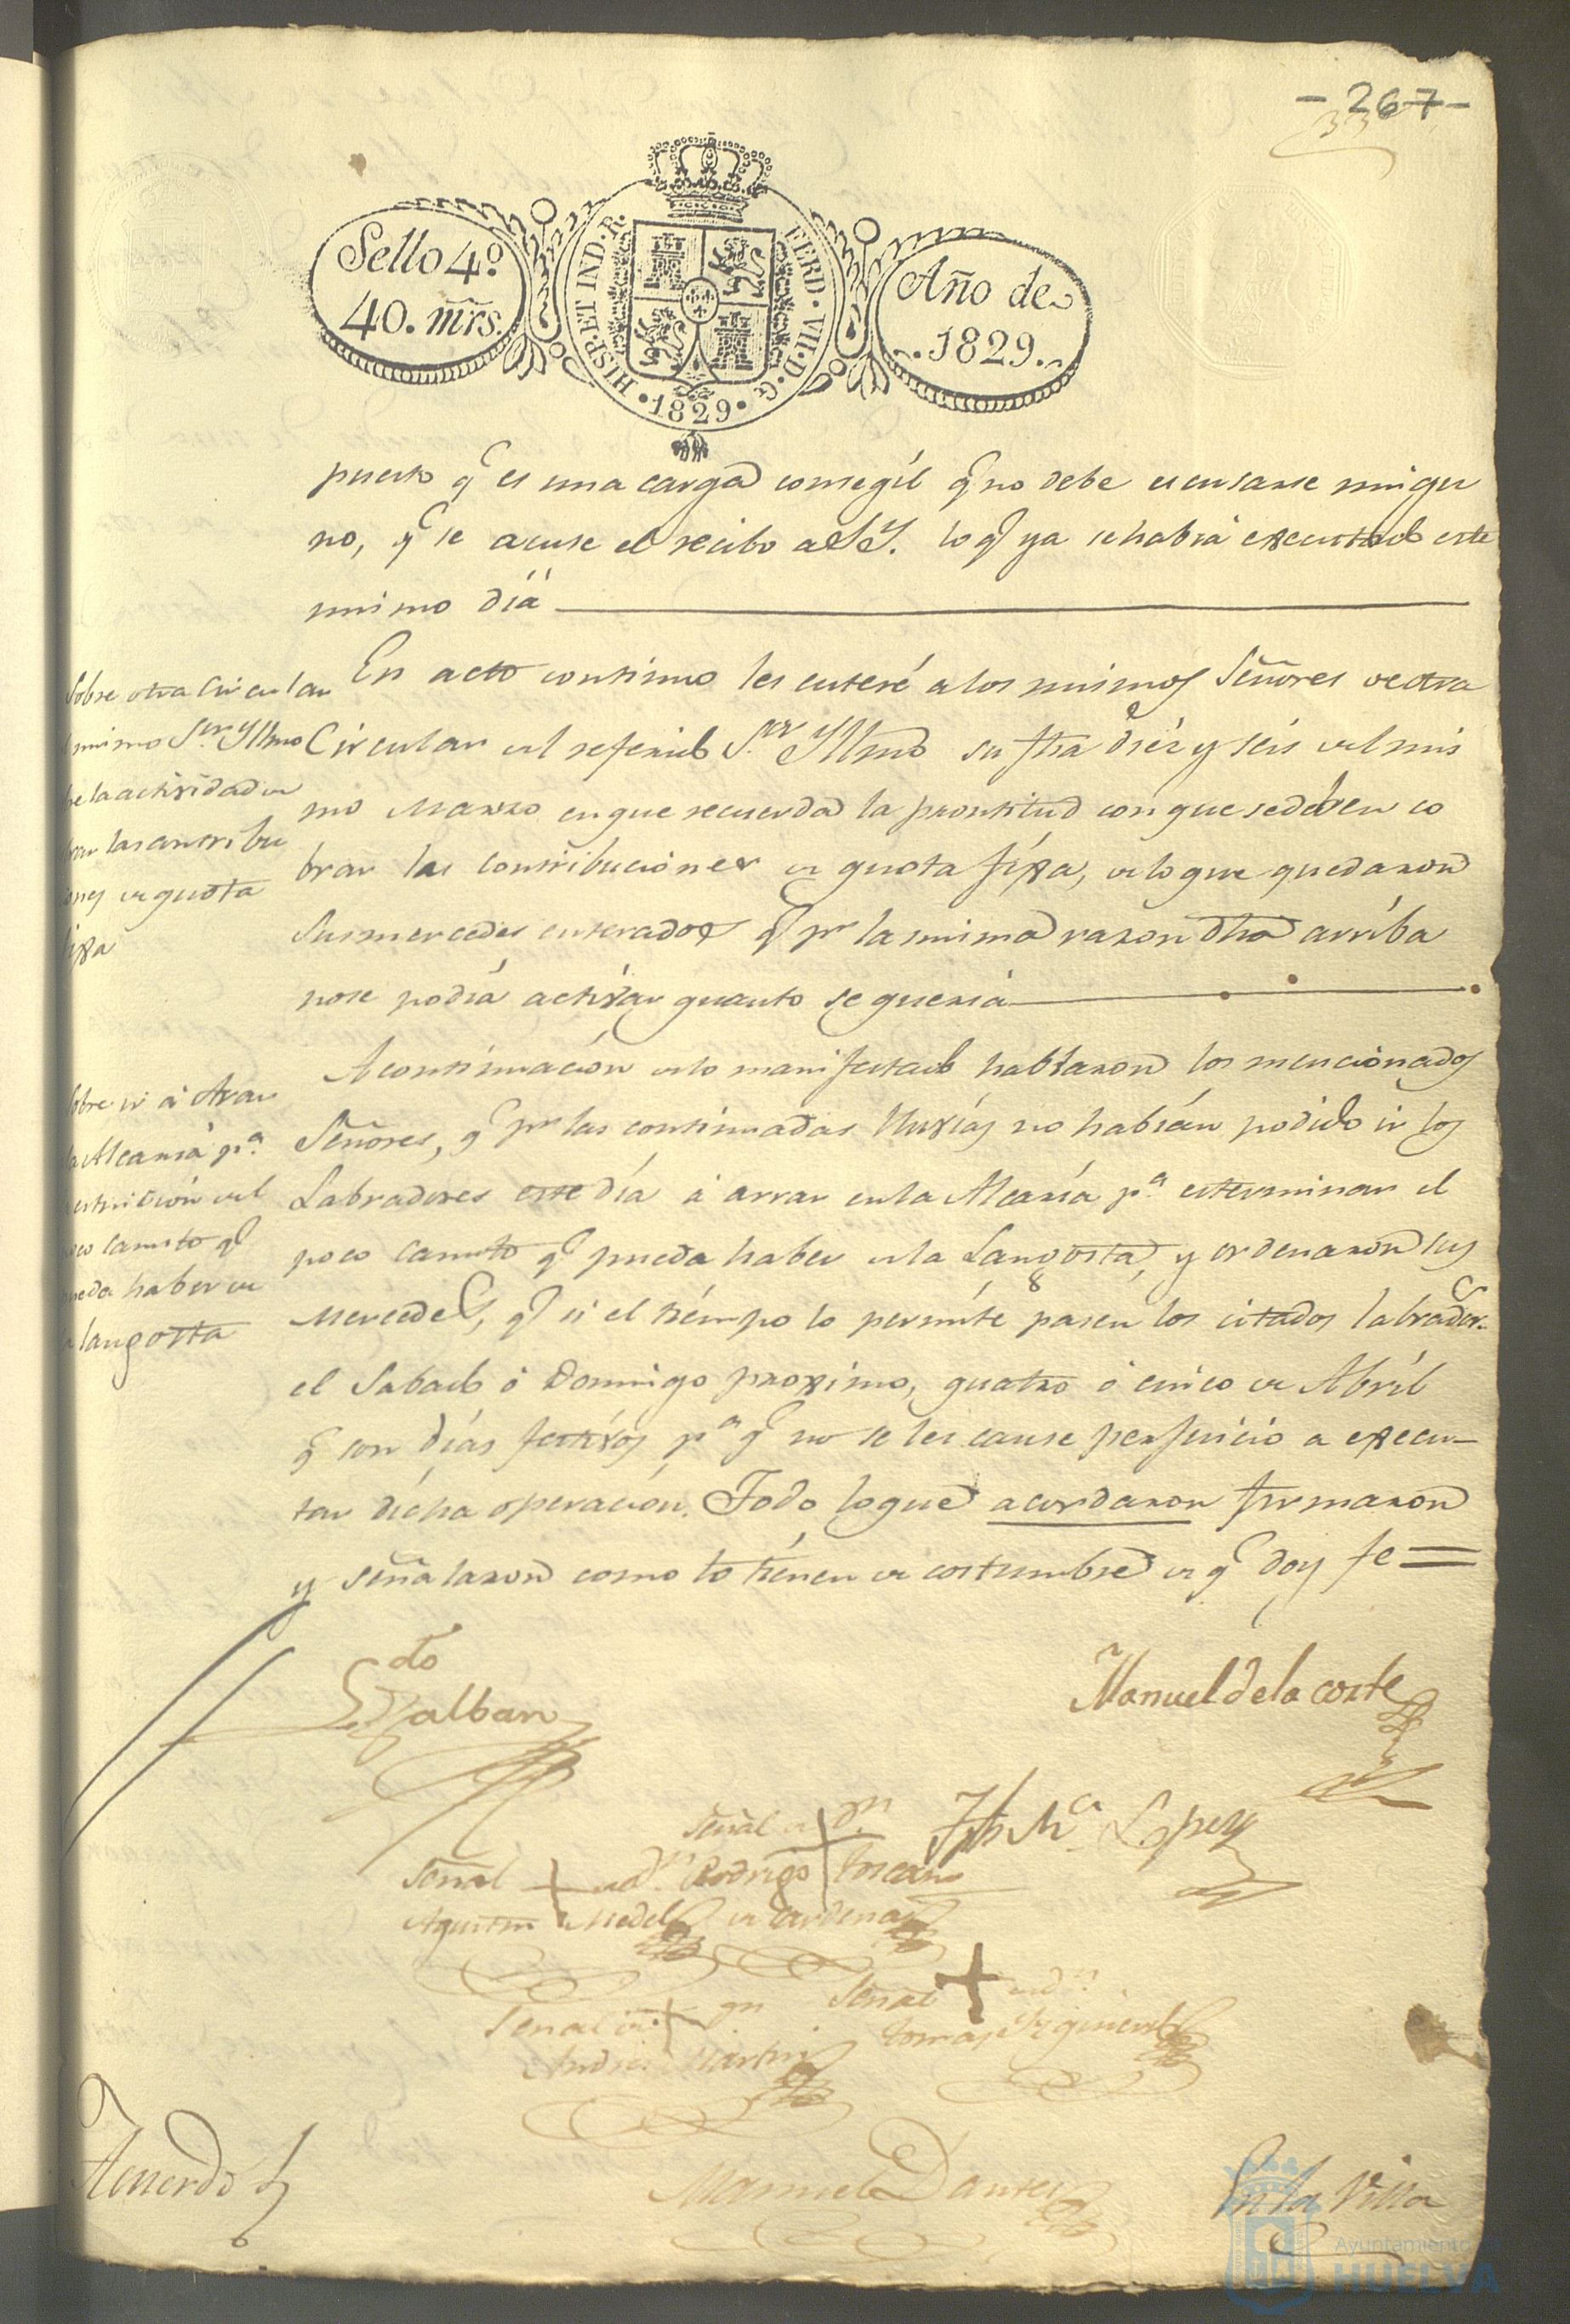 - 267 -
33
Sello 4º
40. mrs.
HISP. ET IND. R.
FERD. VII. D. G.
• 1829 •
Año de
. 1829 .
puesto q.e es una carga consegíl q.e no debe escusarse ningu
no, q.e se acuse el recibo a S.Y. lo q.e ya se habrá executado este
mismo día
Sobre otra Circular
mismo S.or Yllmo
la actividad en
las contribu
de quota
fixa
En acto continuo les enteré a los mismos Señores de otra
Circular del referido S.or Yllmo su fha diéz y séis del mis
mo Marzo en que recuerda la prontitud con que se deben co
brar las contribuciones de quota fixa, de lo que quedaron
Sus mercedes enterados q.e p.r la misma razon dha arriba
no se podrá activar quanto se quería
Sobre ir á Arar
la Alcaría p.a
destruición del
poco canuto q.e
pueda haber de
la langosta
A continuación de lo manifestado hablaron los mencionados
Señores, q.e p.r las continuadas lluvias no habían podido ir los
Labradores este día á arrar en la Alcaría p.a esterminar el
poco canuto q.e pueda haber de la Langosta, y ordenaron sus
Mercedes, q.e si el tiémpo lo permíte pasen los citados labrador.es
el Sabado ó Domingo proximo, quatro ó cinco de Abríl
q.e son días festivos p.a q.e no se les cause perjuicio a execu-
tar dícha operación. Todo lo que acordaron firmaron
y señalaron como lo tiénen de costumbre de q.e doy fe =
Manuel de la corte
Señal de D.n
Señal + de D.n Rodrigo Toscano
Agustin Medel de Cardenas
Señal + de D.n
Señal de + D.n
Andres Martin
Manuel Dantes
Acuerdo
En la Villa
Ayuntamiento de
HUELVA